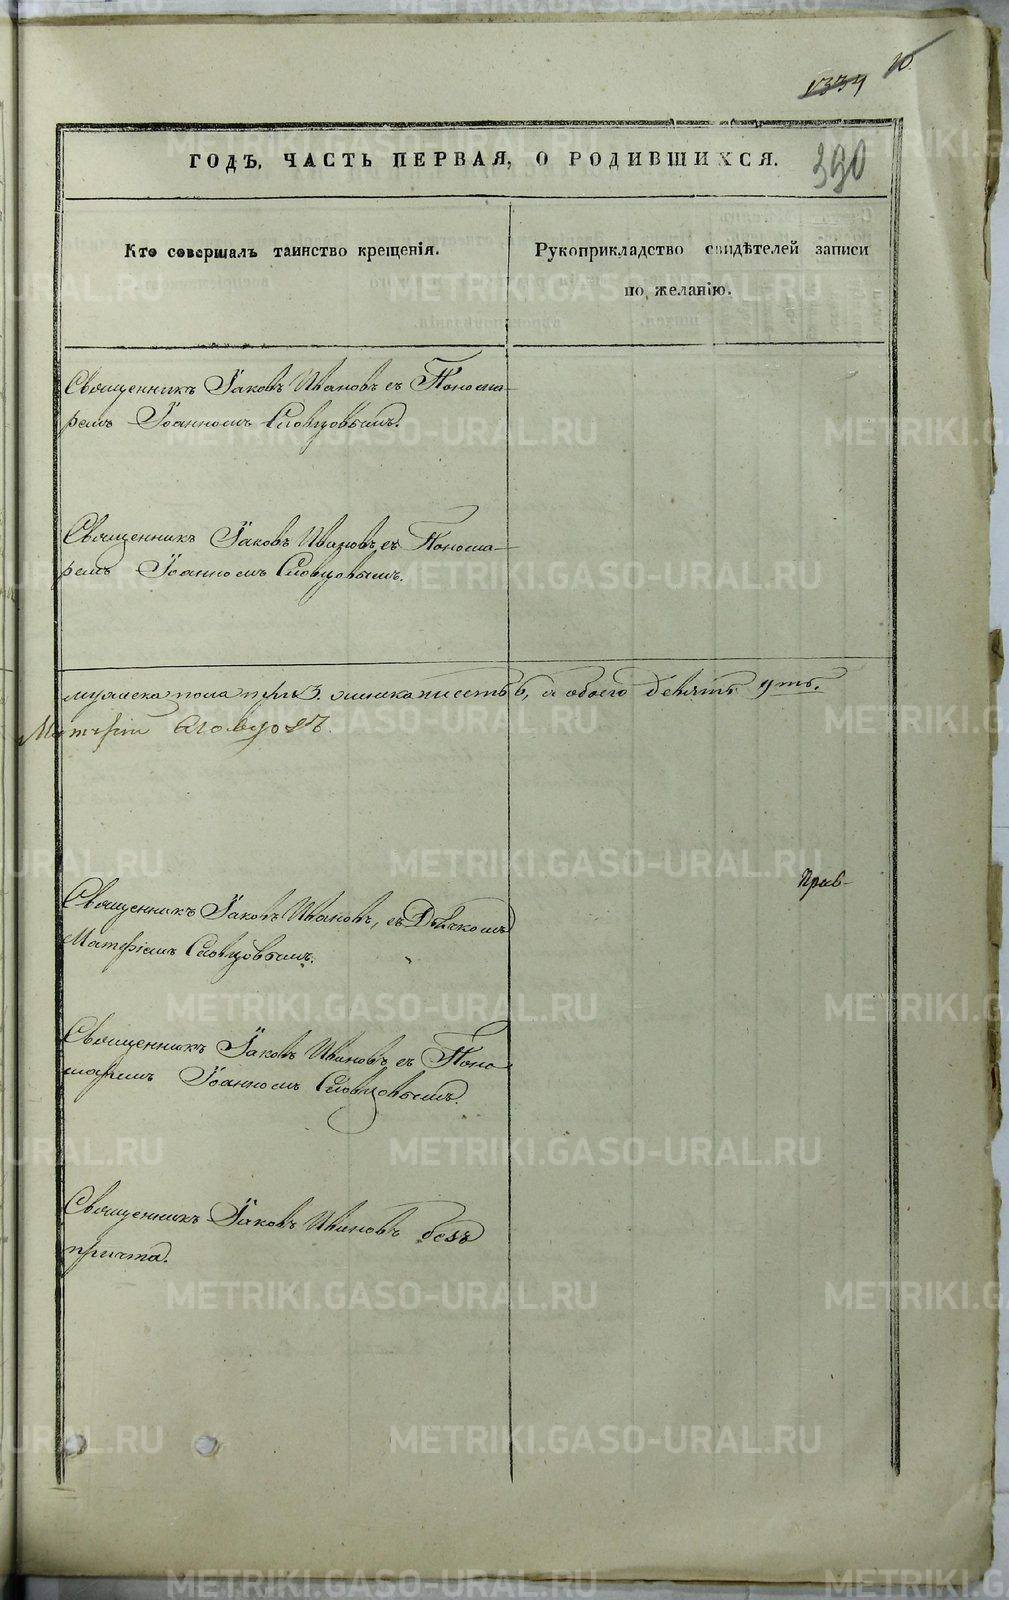 10
1334
ГОДЪ, ЧАСТЬ ПЕРВАЯ, О РОДИВШИХСЯ.
390
Кто совершалъ таинство крещенія.
Рукоприкладство свидѣтелей записи
по желанію.
Священникъ Іаковъ Ивановъ съ Понома-
ремъ Іоанномъ Словцовымъ.
Священникъ Іаковъ Ивановъ съ Понома-
ремъ Іоанномъ Словцовымъ.
мужеска пола три 3. женска шесть 6, а обоего девять 9ть.
Словцовъ.
Прав-
Священникъ Іаковъ Ивановъ, съ Дьячкомъ
Матфіемъ Словцовымъ.
Священникъ Іаковъ Ивановъ съ Поно-
маремъ Іоанномъ Словцовымъ.
Священникъ Іаковъ Ивановъ безъ
причта.
METRIKI.GASO-URAL.RU